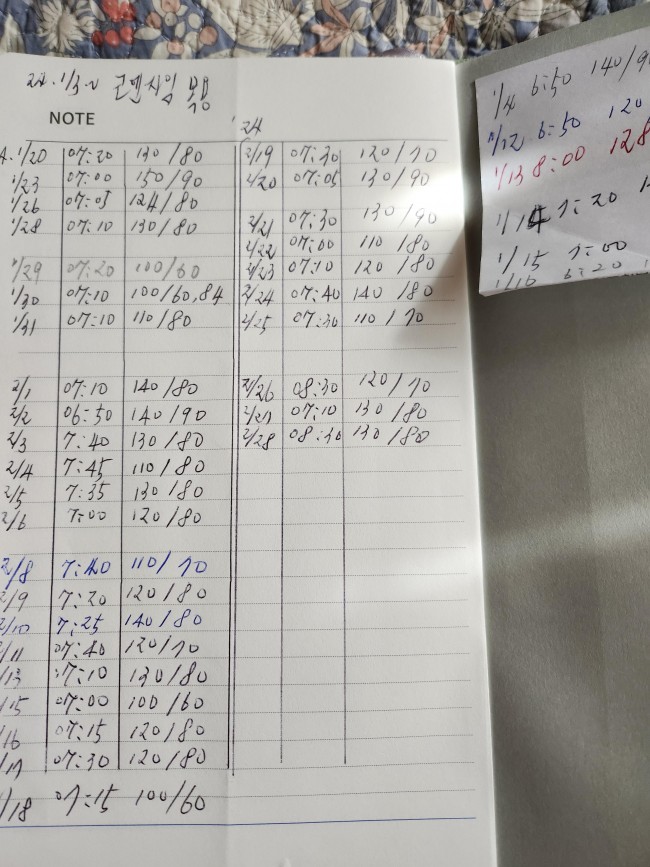 24. 1/3. 수
NOTE
1/20 07:20 130/80
1/23 07:00 150/90
1/26 07:05 124/80
1/28 07:10 130/80
1/29 07:20 100/60
1/30 07:10 100/60,84
1/31 07:10 110/80
2/1 07:10 140/80
2/2 06:50 140/90
2/3 7:40 130/80
2/4 7:45 110/80
2/5 7:35 130/80
2/6 7:00 120/80
2/8 7:40 110/70
2/9 7:20 120/80
2/10 7:25 140/80
2/11 07:40 120/70
/13 07:10 130/80
/15 07:00 100/60
/16 07:15 120/80
/17 07:30 120/80
/18 07:15 100/60
'24
2/19 07:30 120/70
2/20 07:05 130/90
2/21 07:30 130/90
2/22 07:00 110/80
2/23 07:10 120/80
2/24 07:40 140/80
2/25 07:30 110/70
2/26 08:30 120/70
2/27 07:10 130/80
2/28 08:30 130/80
1/4 6:50 140/90
1/12 6:50 120
1/13 8:00 128
1/14 7:20
1/15 7:00
1/16 6:20